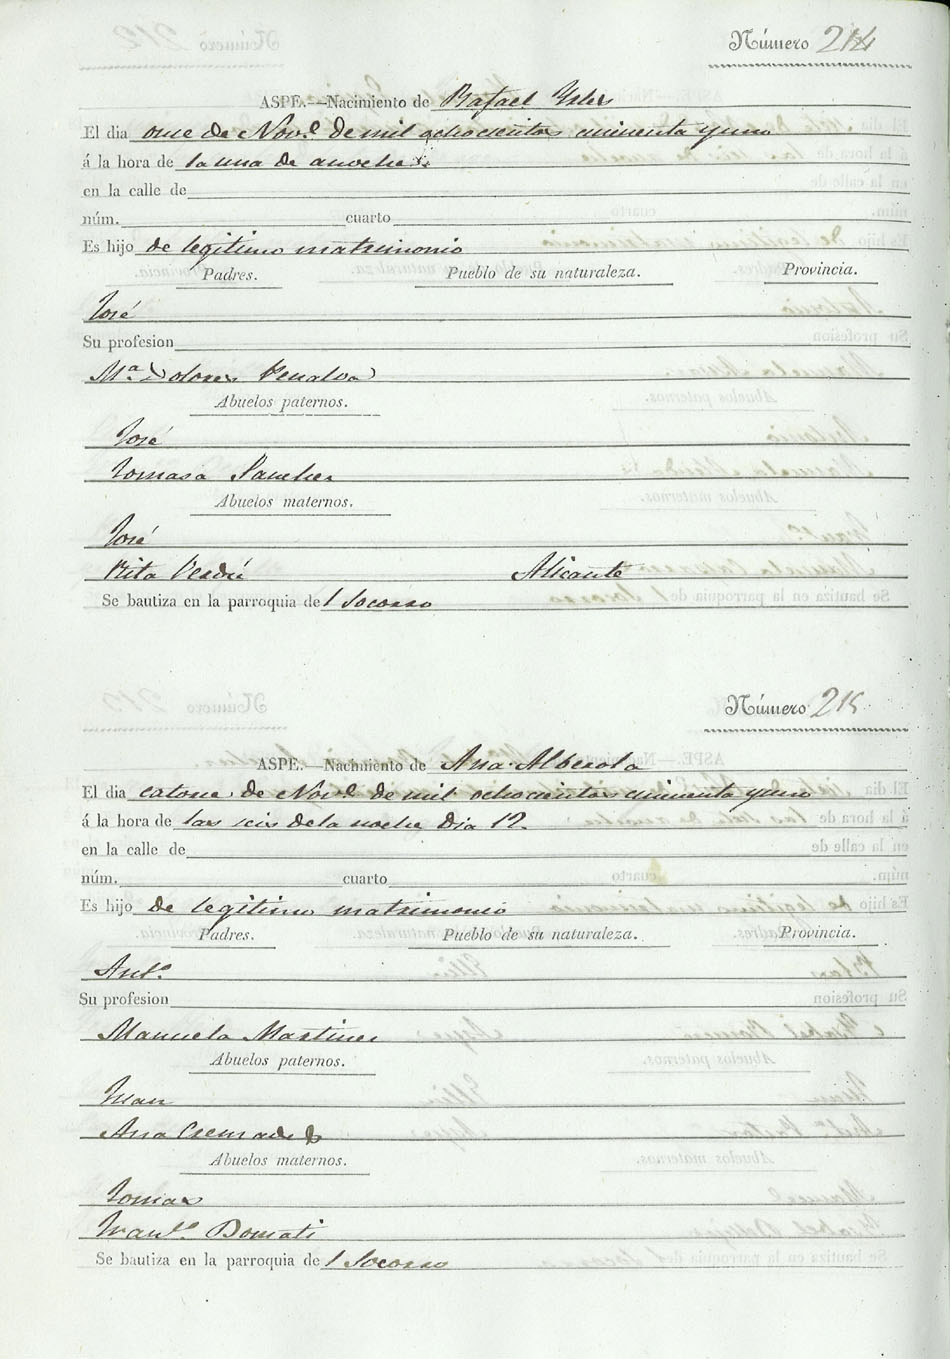 Número 214
ASPE.—Nacimiento de Rafael
El dia once de Nov.e de mil ochocientos cincuenta y uno
á la hora de la una de anoche
en la calle de
núm. cuarto
Es hijo de legitimo matrimonio
Padres. Pueblo de su naturaleza. Provincia.
José
Su profesion
M.a Dolores Penalva
Abuelos paternos.
José
Tomasa Sanchez
Abuelos maternos.
José
Rita Verdú Alicante
Se bautiza en la parroquia del Socorro
Número 215
ASPE.—Nacimiento de Ana Alberola
El dia catorce de Nov.e de mil ochocientos cincuenta y uno
á la hora de las seis de la noche dia 12.
en la calle de
núm. cuarto
Es hijo de legitimo matrimonio
Padres. Pueblo de su naturaleza. Provincia.
Ant.o
Su profesion
Manuela Martinez
Abuelos paternos.
Juan
Ana
Abuelos maternos.
Tomas
Fran.ca Bonati
Se bautiza en la parroquia del Socorro